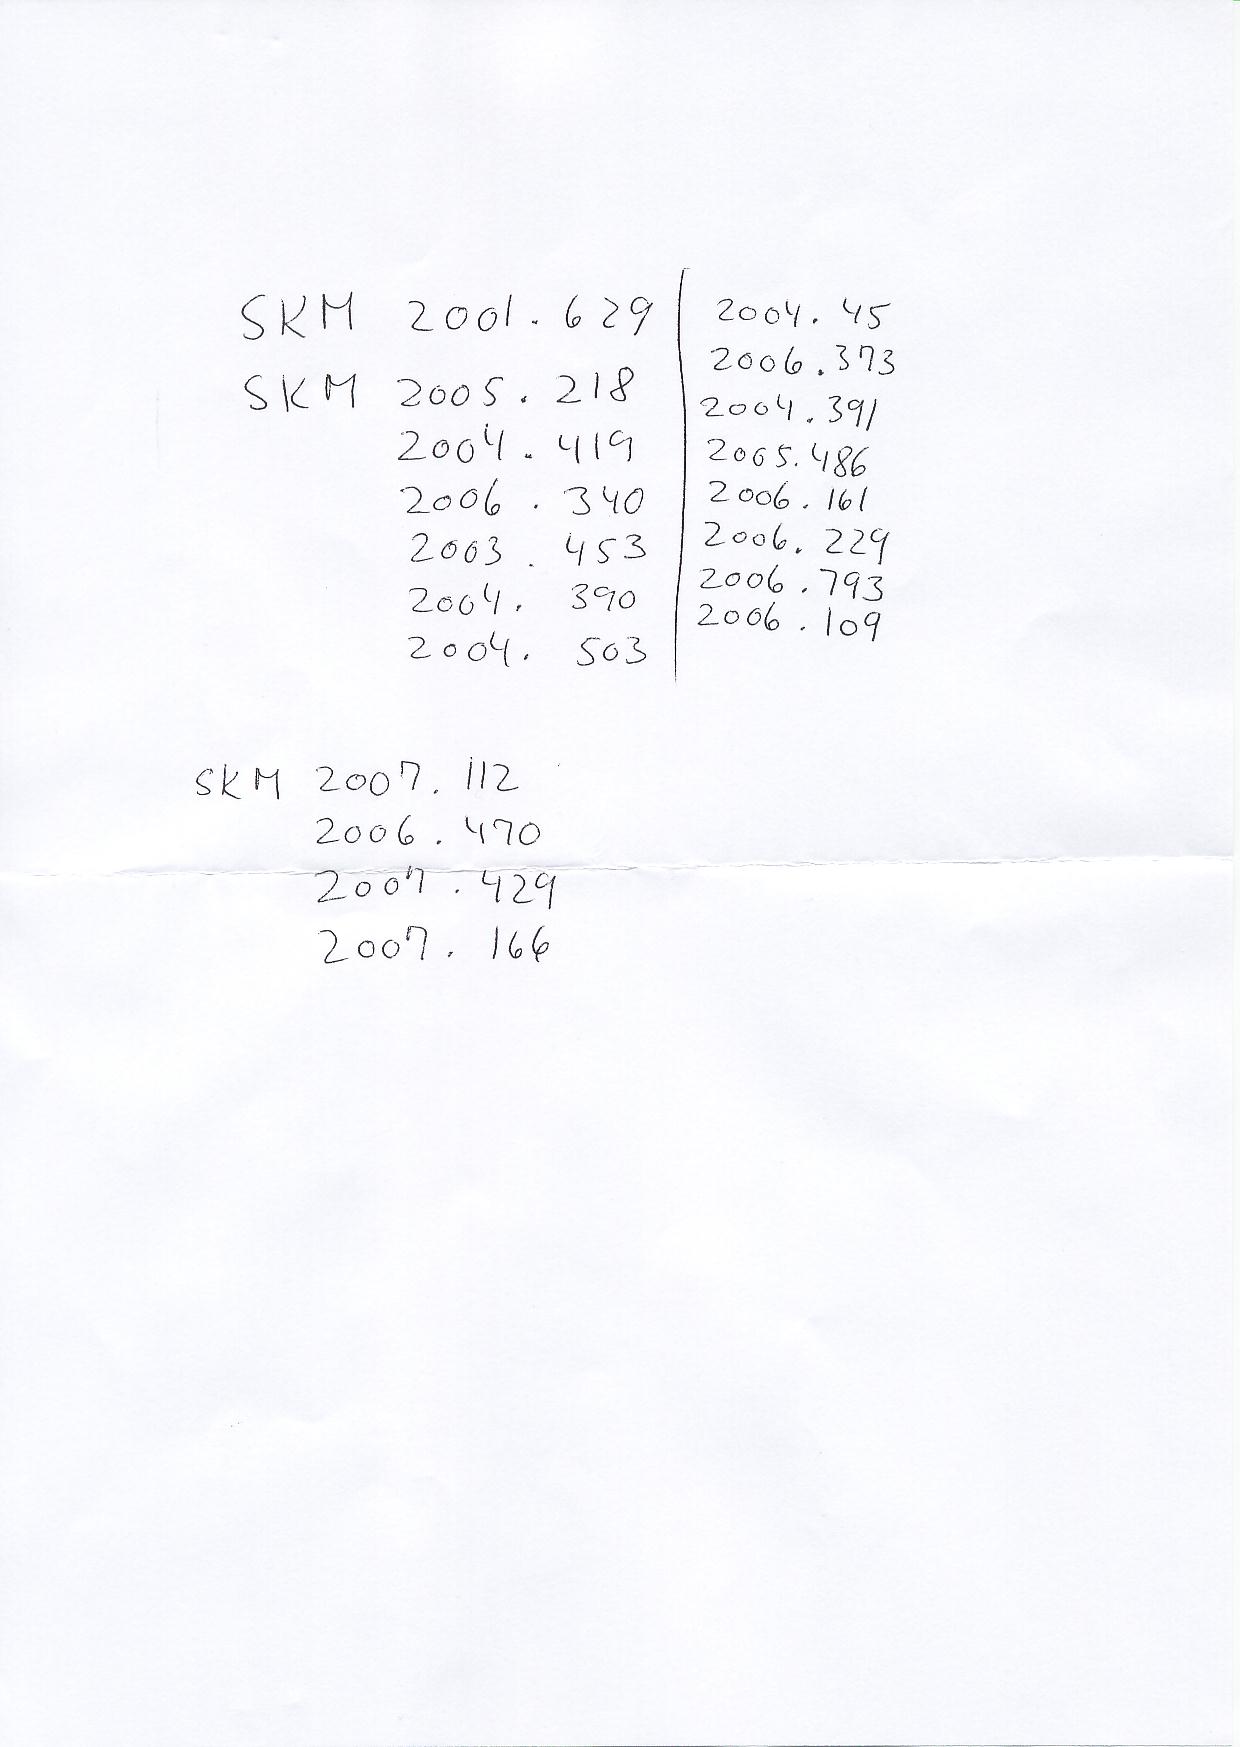 SKM 2001.629
SKM 2005.218
2004.419
2006.340
2003.453
2004.390
2004.503
2004.45
2006.373
2004.391
2005.486
2006.161
2006.229
2006.793
2006.109
SKM 2007.112
2006.470
2007.429
2007.166